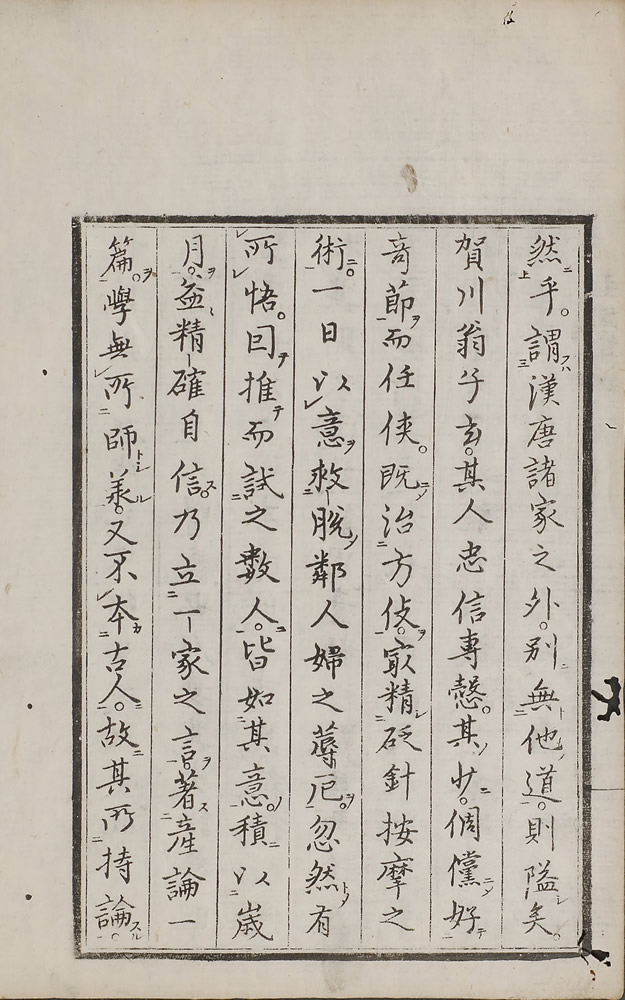 然乎。謂漢唐諸家之外。別無他道。則隘矣。
賀川翁子玄。其人忠信專愨。其少。倜儻好
奇節而任俠。既治方伎。最精砭針按摩之
術。一日以意救脫鄰人婦之蓐厄。忽然有
所悟。因推而試之數人。皆如其意。積以歲
月。益精確自信。乃立一家之言。著產論一
篇。學無所師美。又不本古人。故其所持論。